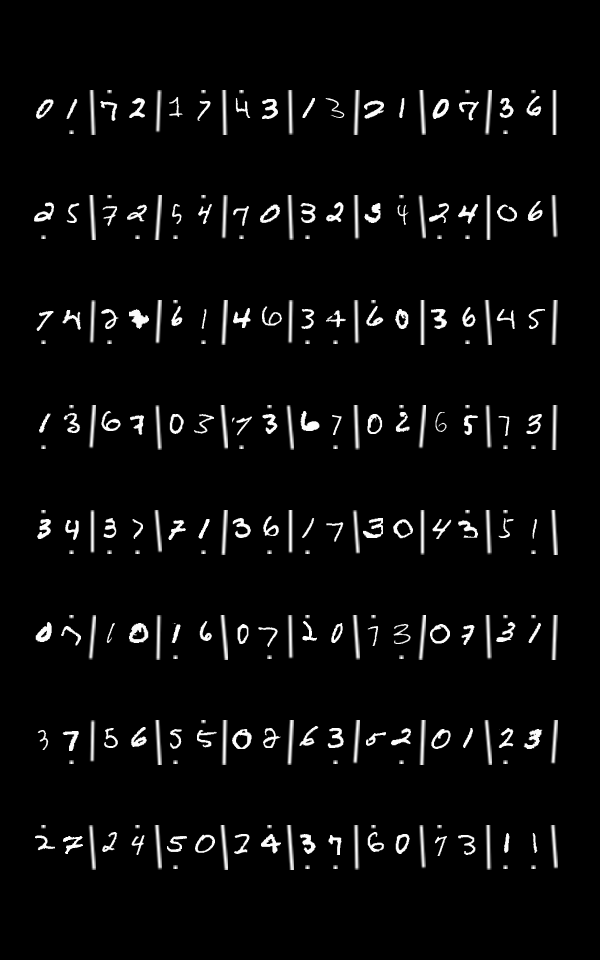 0 1 | 7 2 | 1 7 | 4 3 | 1 3 | 2 1 | 0 7 | 3 6 |
2 5 | 7 2 | 5 4 | 7 0 | 3 2 | 3 4 | 2 4 | 0 6 |
7 4 | 2 | 6 1 | 4 6 | 3 4 | 6 0 | 3 6 | 4 5 |
1 3 | 6 7 | 0 3 | 7 3 | 6 7 | 0 2 | 6 5 | 7 3 |
3 4 | 3 7 | 7 1 | 3 6 | 1 7 | 3 0 | 4 3 | 5 1 |
0 7 | 1 0 | 1 6 | 0 7 | 2 0 | 7 3 | 0 7 | 3 1 |
3 7 | 5 6 | 5 5 | 0 2 | 6 3 | 5 2 | 0 1 | 2 3 |
2 7 | 2 4 | 5 0 | 2 4 | 3 7 | 6 0 | 7 3 | 1 1 |